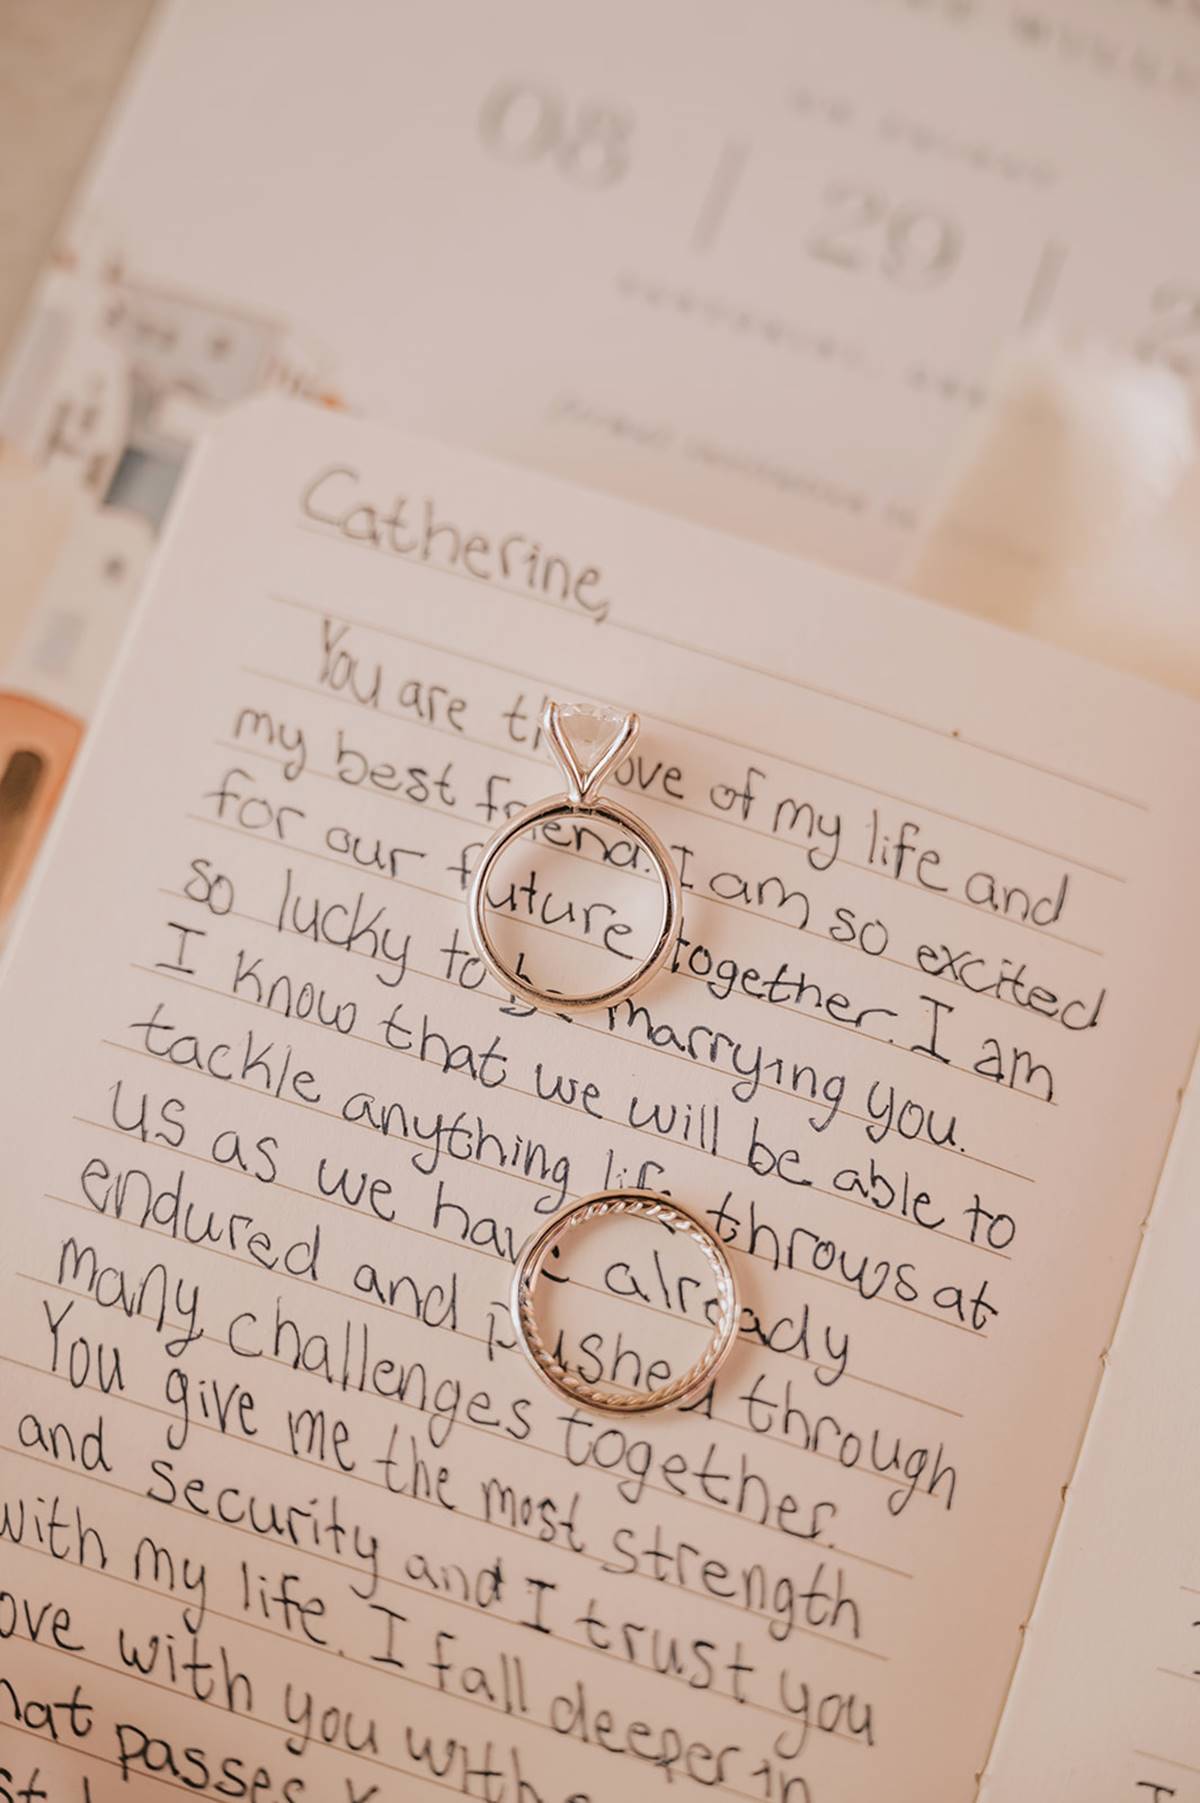 08 | 29 |
Catherine,
You are the love of my life and
my best friend. I am so excited
for our future together. I am
so lucky to be marrying you.
I know that we will be able to
tackle anything life throws at
us as we have already
endured and pushed through
many challenges together.
You give me the most strength
and security and I trust you
with my life. I fall deeper in
ove with you with
hat passes